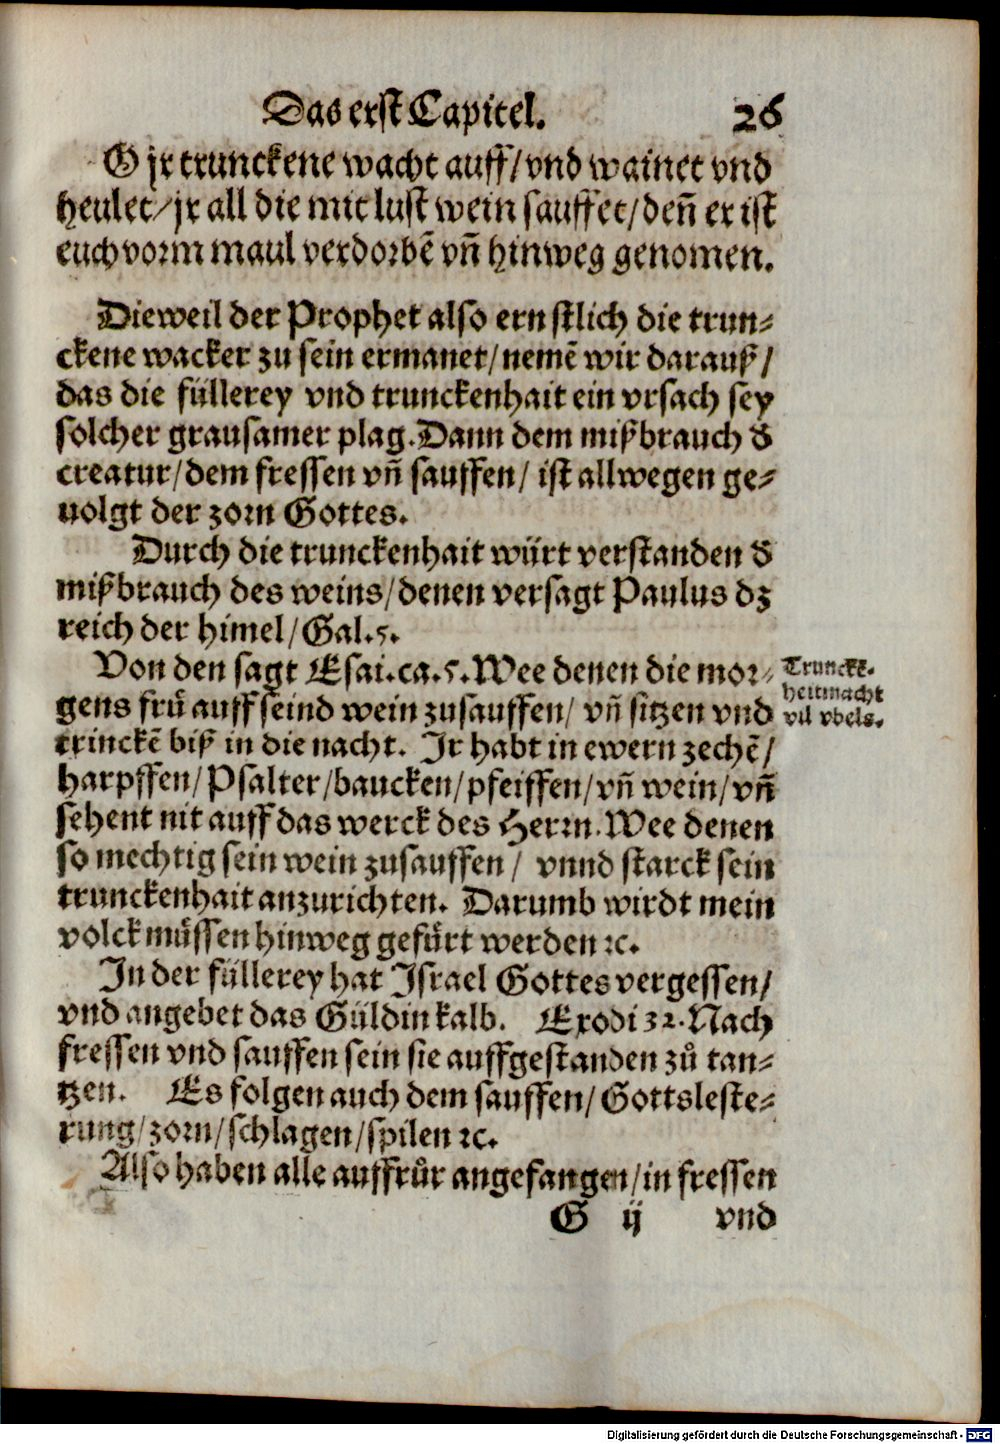 Das erst Capitel. 26
O jr trunckene wacht auff/vnd wainet vnd
heulet/jr all die mit lust wein sauffet/deñ er ist
euch vorm maul verdorbẽ vñ hinweg genomen.
Dieweil der Prophet also ernstlich die trun⸗
ckene wacker zu sein ermanet/nemẽ wir darauß/
das die füllerey vnd trunckenhait ein vrsach sey
solcher grausamer plag. Dann dem mißbrauch ð
creatur/dem fressen vñ sauffen/ ist allwegen ge⸗
uolgt der zorn Gottes.
Durch die trunckenhait würt verstanden ð
mißbrauch des weins/denen versagt Paulus dz
reich der himel/Gal.5.
Von den sagt Esai.ca.5. Wee denen die mor⸗
gens frü auff seind wein zusauffen/ vñ sitzen vnd
trinckẽ biß in die nacht. Jr habt in ewern zechẽ/
harpffen/Psalter/baucken/pfeiffen/vñ wein/vñ
sehent nit auff das werck des Herrn. Wee denen
so mechtig sein wein zusauffen/ vnnd starck sein
trunckenhait anzurichten. Darumb wirdt mein
volck müssen hinweg gefürt werden ꝛc.
Trunckẽ⸗
heit macht
vil vbels.
In der füllerey hat Israel Gottes vergessen/
vnd angebet das Güldin kalb. Exodi 32. Nach
fressen vnd sauffen sein sie auffgestanden zů tan⸗
tzen. Es folgen auch dem sauffen/Gottsleste⸗
rung/zorn/schlagen/spilen ꝛc.
Also haben alle auffrůr angefangen/in fressen
G ij vnd
Digitalisierung gefördert durch die Deutsche Forschungsgemeinschaft - DFG